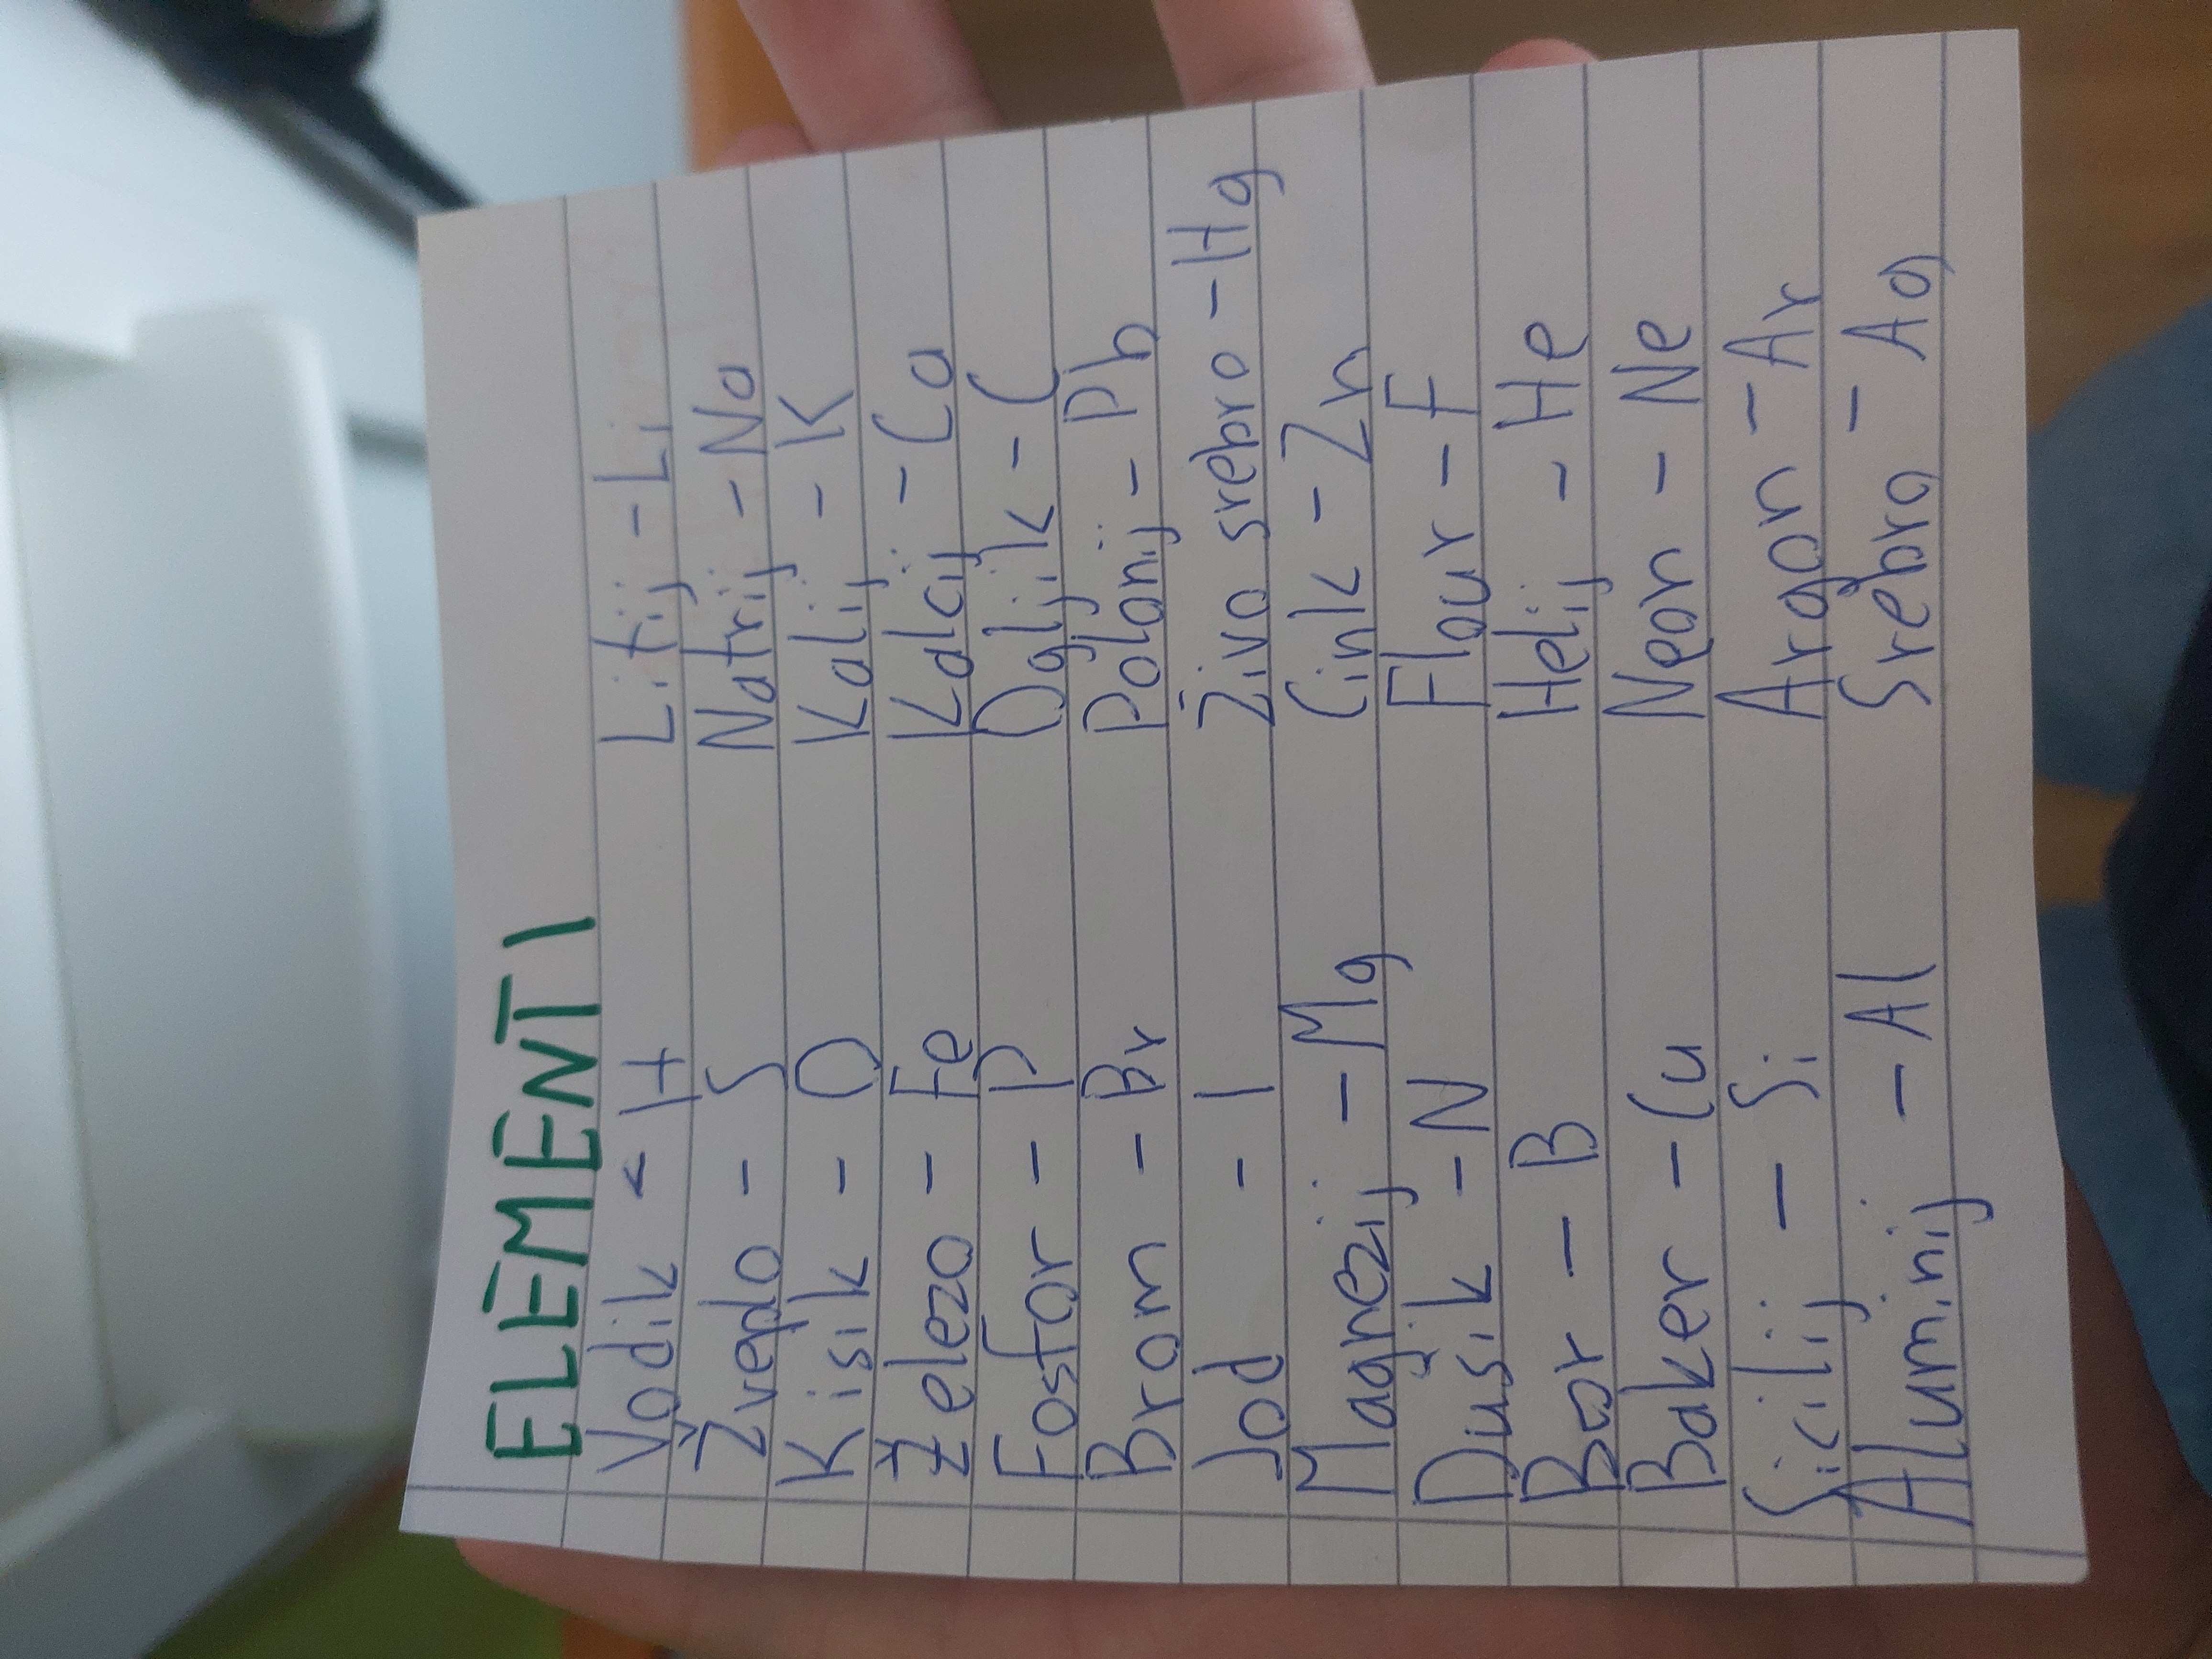 ELEMENTI
Vodik - H
Žveplo - S
Kisik - O
Železo - Fe
Fosfor - P
Brom - Br
Jod - I
Magnezij - Mg
Dušik - N
Bor - B
Baker - Cu
Sicilij - Si
Aluminij - Al
Litij - Li
Natrij - Na
Kalij - K
Kalcij - Ca
Ogljik - C
Polonij - Pb
Živo srebro - Hg
Cink - Zn
Flour - F
Helij - He
Neon - Ne
Argon - Ar
Srebro - Ag